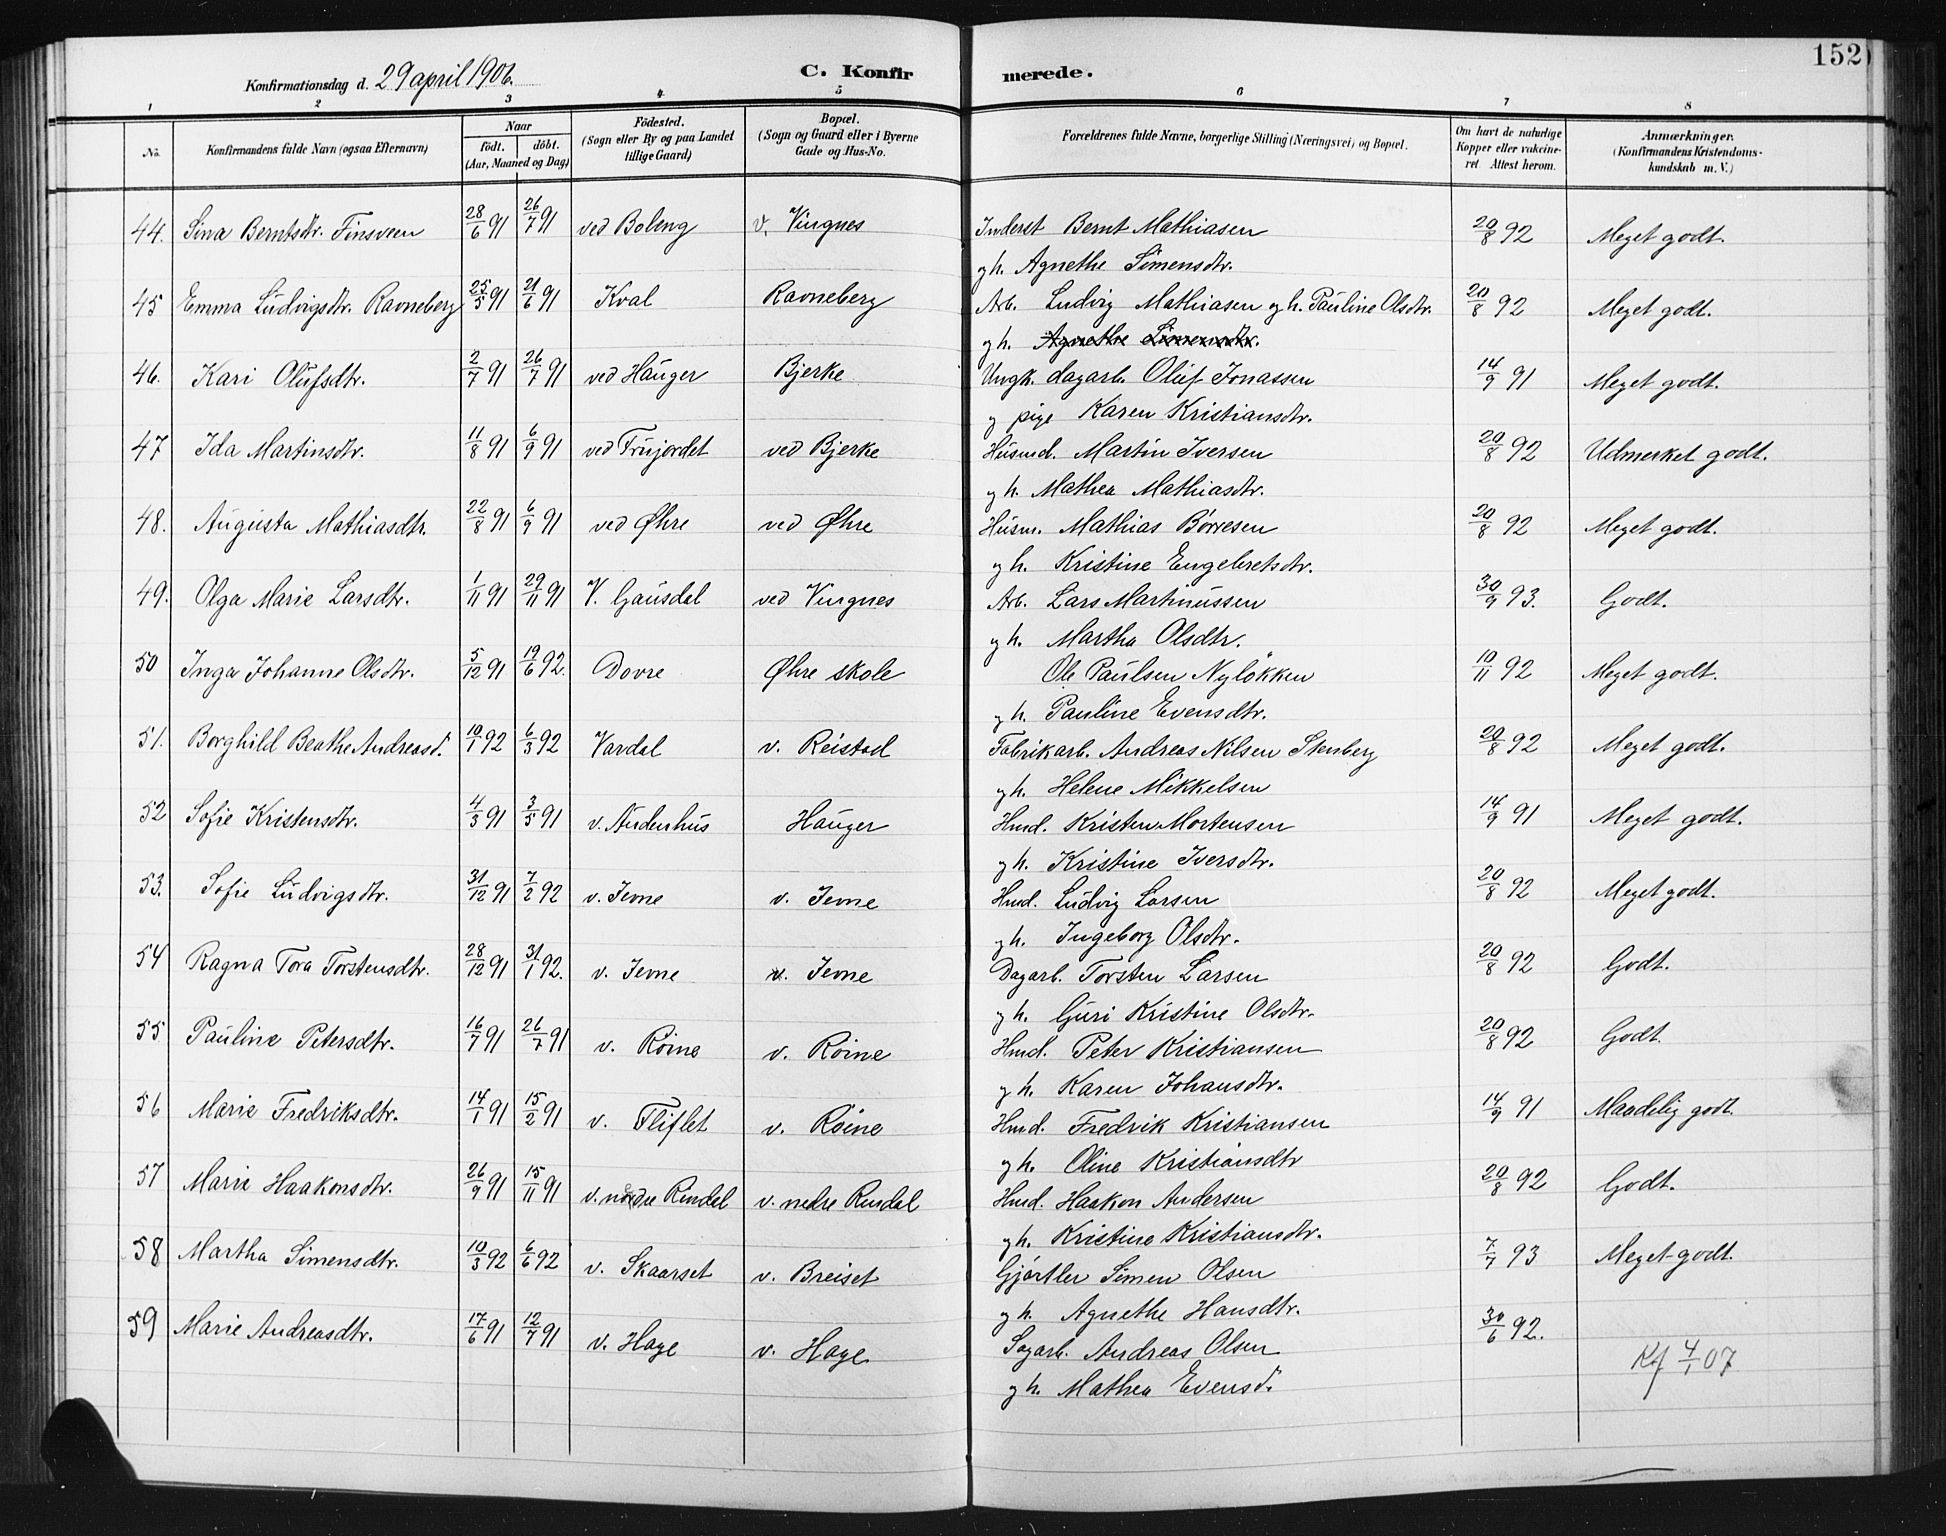 152
Konfirmationsdag d. 29 april 1906.
C. Konfirmerede.
1 2 3 4 5 6 7 8
No.
Konfirmandens fulde Navn (ogsaa Efternavn)
Naar
født. døbt.
(Aar, Maaned og Dag)
Födested.
(Sogn eller By og paa Landet
tillige Gaard)
Bopæl.
(Sogn og Gaard eller i Byerne
Gade og Hus-No.
Forældrenes fulde Navne, borgerlige Stilling (Næringsvei) og Bopæl.
Om havt de naturlige
Kopper eller vakcine-
ret. Attest herom.
Anmærkninger.
(Konfirmandens Kristendoms-
kundskab m. V.)
44. Sina Berntsdtr. Finsveen 28/6 91 26/7 91 ved Boleng v. Vingnes Inderst Bernt Mathiasen 20/8 92 Meget godt.
gh. Agnethe Simensdtr.
45 Emma Ludvigsdtr. Ravneberg 25/5 91 21/6 91 Kval Ravneberg Arb. Ludvig Mathiasen gh. Pauline Olsdtr. 20/8 92 Meget godt.
gh. Agnethe Simensdtr.
46. Kari Olufsdtr. 2/7 91 26/7 91 ved Hauger Bjerke Ungk. dagarb. Oluf Jonassen 14/9 91 Meget godt.
og pige Karen Kristiansdtr.
47 Ida Martinsdtr. 11/8 91 6/9 91 ved Frujordet ved Bjerke Husmd. Martin Iversen 20/8 92 Udmerket godt.
gh. Mathea Mathiasdtr.
48. Augusta Mathiasdtr. 22/8 91 6/9 91 ved Øhre ved Øhre Husm. Mathias Børresen 20/8 92 Meget godt.
gh. Kristine Engebretsdtr.
49. Olga Marie Larsdtr. 1/11 91 29/11 91 V. Gausdal ved Vingnes Arb. Lars Martinussen 30/9 93. Godt.
gh. Martha Olsdtr.
50 Inga Johanne Olsdtr. 5/12 91 19/6 92. Dovre Øhre skole Ole Paulsen Nyløkken 10/11 92 Meget godt.
gh. Pauline Evensdtr.
51. Borghild Beathe Andreasd. 10/1 92 6/3 92 Vardal v. Reistad Fabrikarb. Andreas Nilsen Stenberg 20/8 92 Meget godt.
gh. Helene Mikkelsen
52 Sofie Kristensdtr. 4/3 91 3/5 91 v. Audenhus Hauger Hmd. Kristen Mortensen 14/9 91 Meget godt.
gh. Kristine Iversdtr.
53. Sofie Ludvigsdtr. 31/12 91 7/2 92 v. Jevne v. Jevne Hmd. Ludvig Larsen 20/8 92 Meget godt.
gh. Ingeborg Olsdtr.
54 Ragna Tora Torstensdtr. 28/12 91 31/1 92. v. Jevne v. Jevne Dagarb. Torsten Larsen 20/8 92 Godt.
gh. Guri Kristine Olsdtr.
55 Pauline Petersdtr. 16/7 91 26/7 91 v. Röine v. Röine Hmd. Peter Kristiansen 20/8 92 Godt.
gh. Karen Johansdtr.
56 Marie Fredriksdtr. 14/1 91 15/2 91 v. Fliflet v. Röine Hmd. Fredrik Kristiansen 14/9 91 Maadelig godt.
gh. Oline Kristiansdtr
57 Marie Haakonsdtr. 26/9 91 15/11 91 v. nedre Rindal v. nedre Rindal Hmd. Haakon Andersen 20/8 92 Godt.
gh. Kristine Kristiansdtr.
58 Martha Simensdtr. 10/3 92 6/6 92 v. Skaarset v. Breiset Gjørtler Simen Olsen 7/7 93 Meget godt.
gh. Agnethe Hansdtr.
59 Marie Andreasdtr. 17/6 91 12/7 91 v. Hage v. Hage Sagarb. Andreas Olsen 30/6 92.
gh. Mathea Evensd.
Kf 4/1 07